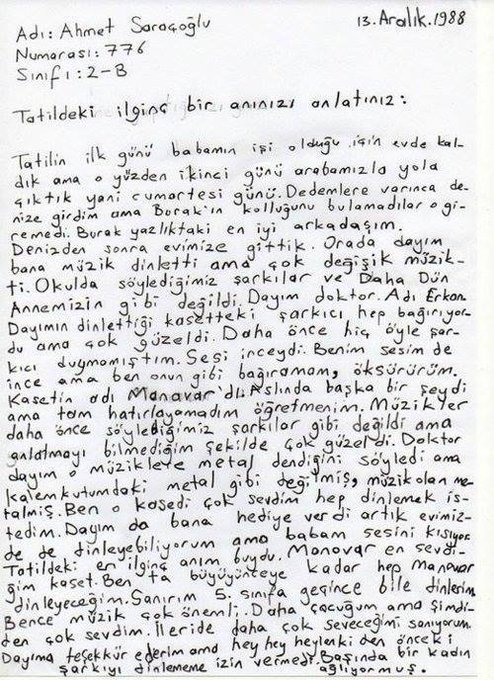 Adı: Ahmet Saraçoğlu
13.Aralık.1988
Numarası: 776
Sınıfı: 2-B
Tatildeki ilginç bir anınızı anlatınız:
Tatilin ilk günü babamın işi olduğu için evde kal-
dık ama o yüzden ikinci günü arabamızla yola
çıktık yani cumartesi günü. Dedemlere varınca de-
nize girdim ama Burak'ın kolluğunu bulamadılar o gi-
remedi. Burak yazlıktaki en iyi arkadaşım.
Denizden sonra evimize gittik. Orada dayım
bana müzik dinletti ama çok değişik müzik-
ti. Okulda söylediğimiz şarkılar ve Daha Dün
Annemizin gibi değildi. Dayım doktor. Adı Erkan.
Dayımın dinlettiği kasetteki şarkıcı hep bağırıyor-
du ama çok güzeldi. Daha önce hiç öyle şar-
kıcı duymamıştım. Sesi inceydi. Benim sesim de
ince ama ben onun gibi bağıramam, öksürürüm.
Kasetin adı Manavar'dı. Aslında başka bir şeydi
ama tam hatırlayamadım öğretmenim. Müzikler
daha önce söylediğimiz şarkılar gibi değildi ama
anlatmayı bilmediğim şekilde çok güzeldi. Doktor
dayım o müziklete metal dendiğini söyledi ama
kalemkutumdaki metal gibi değilmiş, müzik olan me-
talmiş. Ben o kasedi çok sevdim hep dinlemek is-
tedim. Dayım da bana hediye verdi artık evimiz-
de de dinleyebiliyorum ama babam sesini kısıyor.
Tatildeki en ilginç anım buydu. Manovar en sevdi-
ğim kaset. Ben ta büyüyünceye kadar hep Manovar
dinleyeceğim. Sanırım 5. sınıfa geçince bile dinlerim.
Bence müzik çok önemli. Daha çocuğum ama şimdi-
den çok sevdim. İleride daha çok seveceğimi sanıyorum.
Dayıma teşekkür ederim ama hey hey heylenki den önceki
şarkıyı dinlememe izin vermedi. Başında bir kadın
ağlıyormuş.